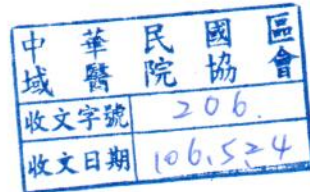 中華民國區
域醫院協會
收文字號 206.
收文日期 106.5.24